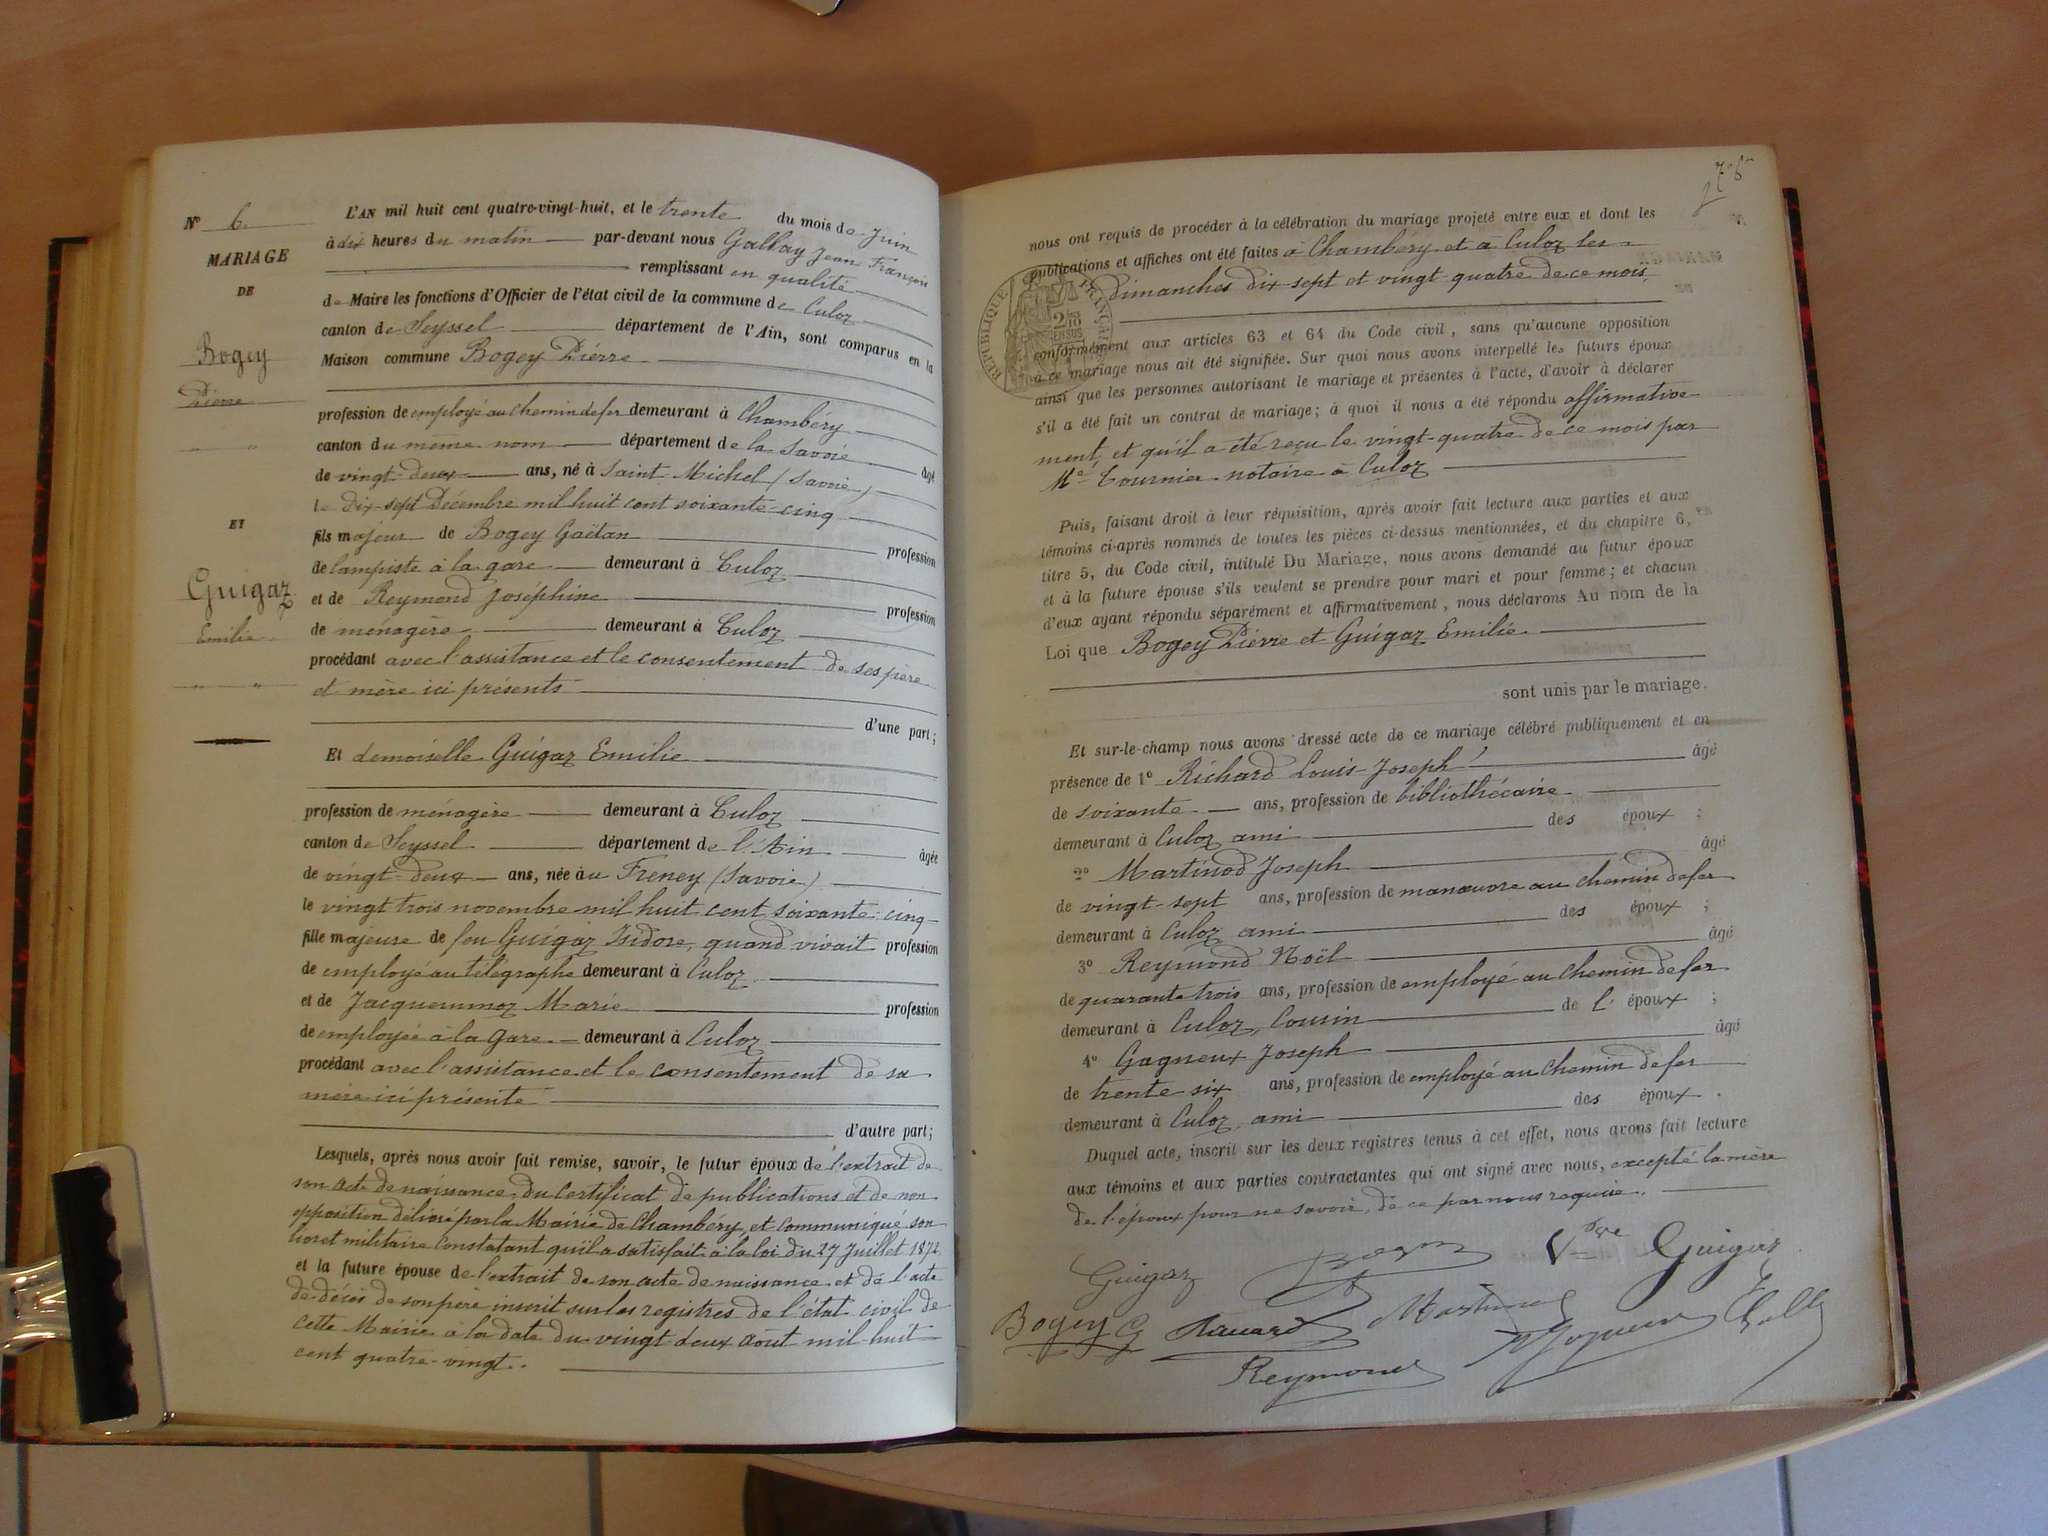 N° 6.
MARIAGE
DE
Bogey
Pierre
ET
Guigaz
Emilie
L'AN mil huit cent quatre-vingt-huit, et le trente du mois de Juin
à dix heures du matin par-devant nous Gallay Jean François
remplissant en qualité
de Maire les fonctions d'Officier de l'état civil de la commune de Culoz
canton de Seyssel département de l'Ain, sont comparus en la
Maison commune Bogey Pierre
profession de employé au chemin de fer demeurant à Chambéry
canton du même nom département de la Savoie âgé
de vingt-deux ans, né à Saint Michel (Savoie)
le dix-sept Décembre mil huit cent soixante-cinq
fils majeur de Bogey Gaëtan profession
de lampiste à la gare demeurant à Culoz
et de Reymond Joséphine profession
de ménagère demeurant à Culoz
procédant avec l'assistance et le consentement de ses père
et mère ici présents
d'une part;
Et demoiselle Guigaz Emilie
profession de ménagère demeurant à Culoz
canton de Seyssel département de l'Ain âgée
de vingt-deux ans, née au Freney (Savoie)
le vingt trois novembre mil huit cent soixante-cinq
fille majeure de feu Guigaz Isidore, quand vivait profession
de employé au télégraphe demeurant à Culoz
et de Jacquemmoz Marie profession
de employée à la gare demeurant à Culoz
procédant avec l'assistance et le consentement de sa
mère ici présente
d'autre part;
Lesquels, après nous avoir fait remise, savoir, le futur époux de l'extrait de
son acte de naissance, du certificat de publications et de non
opposition délivré par la Mairie de Chambéry, et communiqué son
livret militaire constatant qu'il a satisfait à la loi du 27 Juillet 1872,
et la future épouse de l'extrait de son acte de naissance et de l'acte
de décès de son père inscrit sur les registres de l'état civil de
cette Mairie à la date du vingt deux août mil huit
cent quatre-vingt.
nous ont requis de procéder à la célébration du mariage projeté entre eux et dont les
publications et affiches ont été faites à Chambéry et à Culoz les
dimanches dix-sept et vingt quatre de ce mois,
RÉPUBLIQUE FRANÇAISE
conformément aux articles 63 et 64 du Code civil, sans qu'aucune opposition
à ce mariage nous ait été signifiée. Sur quoi nous avons interpellé les futurs époux
ainsi que les personnes autorisant le mariage et présentes à l'acte, d'avoir à déclarer
s'il a été fait un contrat de mariage; à quoi il nous a été répondu affirmative-
ment, et qu'il a été reçu le vingt-quatre de ce mois par
Me Tournier notaire à Culoz
Puis, faisant droit à leur réquisition, après avoir fait lecture aux parties et aux
témoins ci-après nommés de toutes les pièces ci-dessus mentionnées, et du chapitre 6,
titre 5, du Code civil, intitulé Du Mariage, nous avons demandé au futur époux
et à la future épouse s'ils veulent se prendre pour mari et pour femme; et chacun
d'eux ayant répondu séparément et affirmativement, nous déclarons Au nom de la
Loi que Bogey Pierre et Guigaz Emilie
sont unis par le mariage.
Et sur-le-champ nous avons dressé acte de ce mariage célébré publiquement et en
présence de 1° Richard Louis-Joseph âgé
de soixante ans, profession de bibliothécaire
demeurant à Culoz ami des époux ;
2° Martinod Joseph âgé
de vingt-sept ans, profession de manœuvre au chemin de fer
demeurant à Culoz ami des époux ;
3° Reymond Noël âgé
de quarante trois ans, profession de employé au chemin de fer
demeurant à Culoz, cousin de l' époux ;
4° Gagneux Joseph âgé
de trente six ans, profession de employé au chemin de fer
demeurant à Culoz, ami des époux .
Duquel acte, inscrit sur les deux registres tenus à cet effet, nous avons fait lecture
aux témoins et aux parties contractantes qui ont signé avec nous, excepté la mère
de l'époux pour ne savoir, de ce par nous requise.
Guigaz Bogey Vve Guigaz
Bogey G Richard Martinod
Reymond